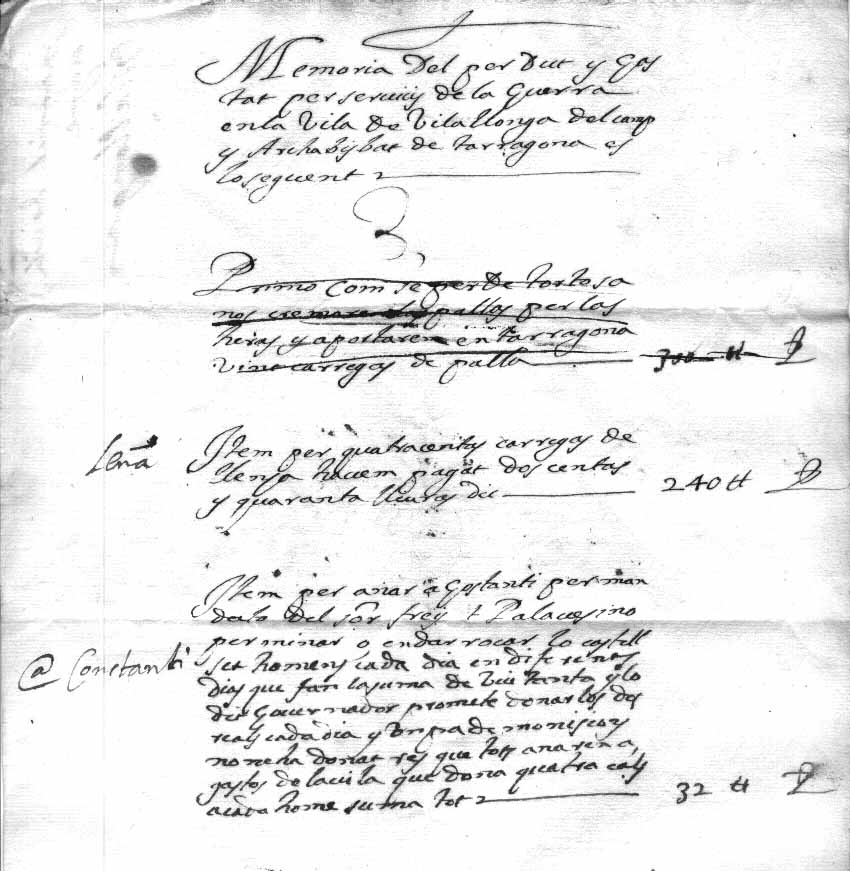 Memoria del per dut y Gos
tat per serviiis de la Guerra
en la Vila de Vilallonga del camp
y Archabisbat de tarragona es
lo seguent
Primo com se per de tortosa
nos cremaren las pallas per las
heras y aportaren en tarragona
vint carregas de palla 300 tt
Leña
Item per quatracentas carregas de
llenya havem pagat dos centas
y quaranta lliuras dic 240 tt
Item per anar a Gostanti per man
dato del sor frey t Palavesino
@ Constanti
per minar o endarrocar lo castell
set homens cada dia en diferents
dias que fan la suma de vuitanta y lo
dit Governador promete donarlos dos
reals cada dia y un pa de monisions
no ne ha donat res que tots anaren a
gastos de la vila que dona quatra rals
a cada home suma tot 32 tt